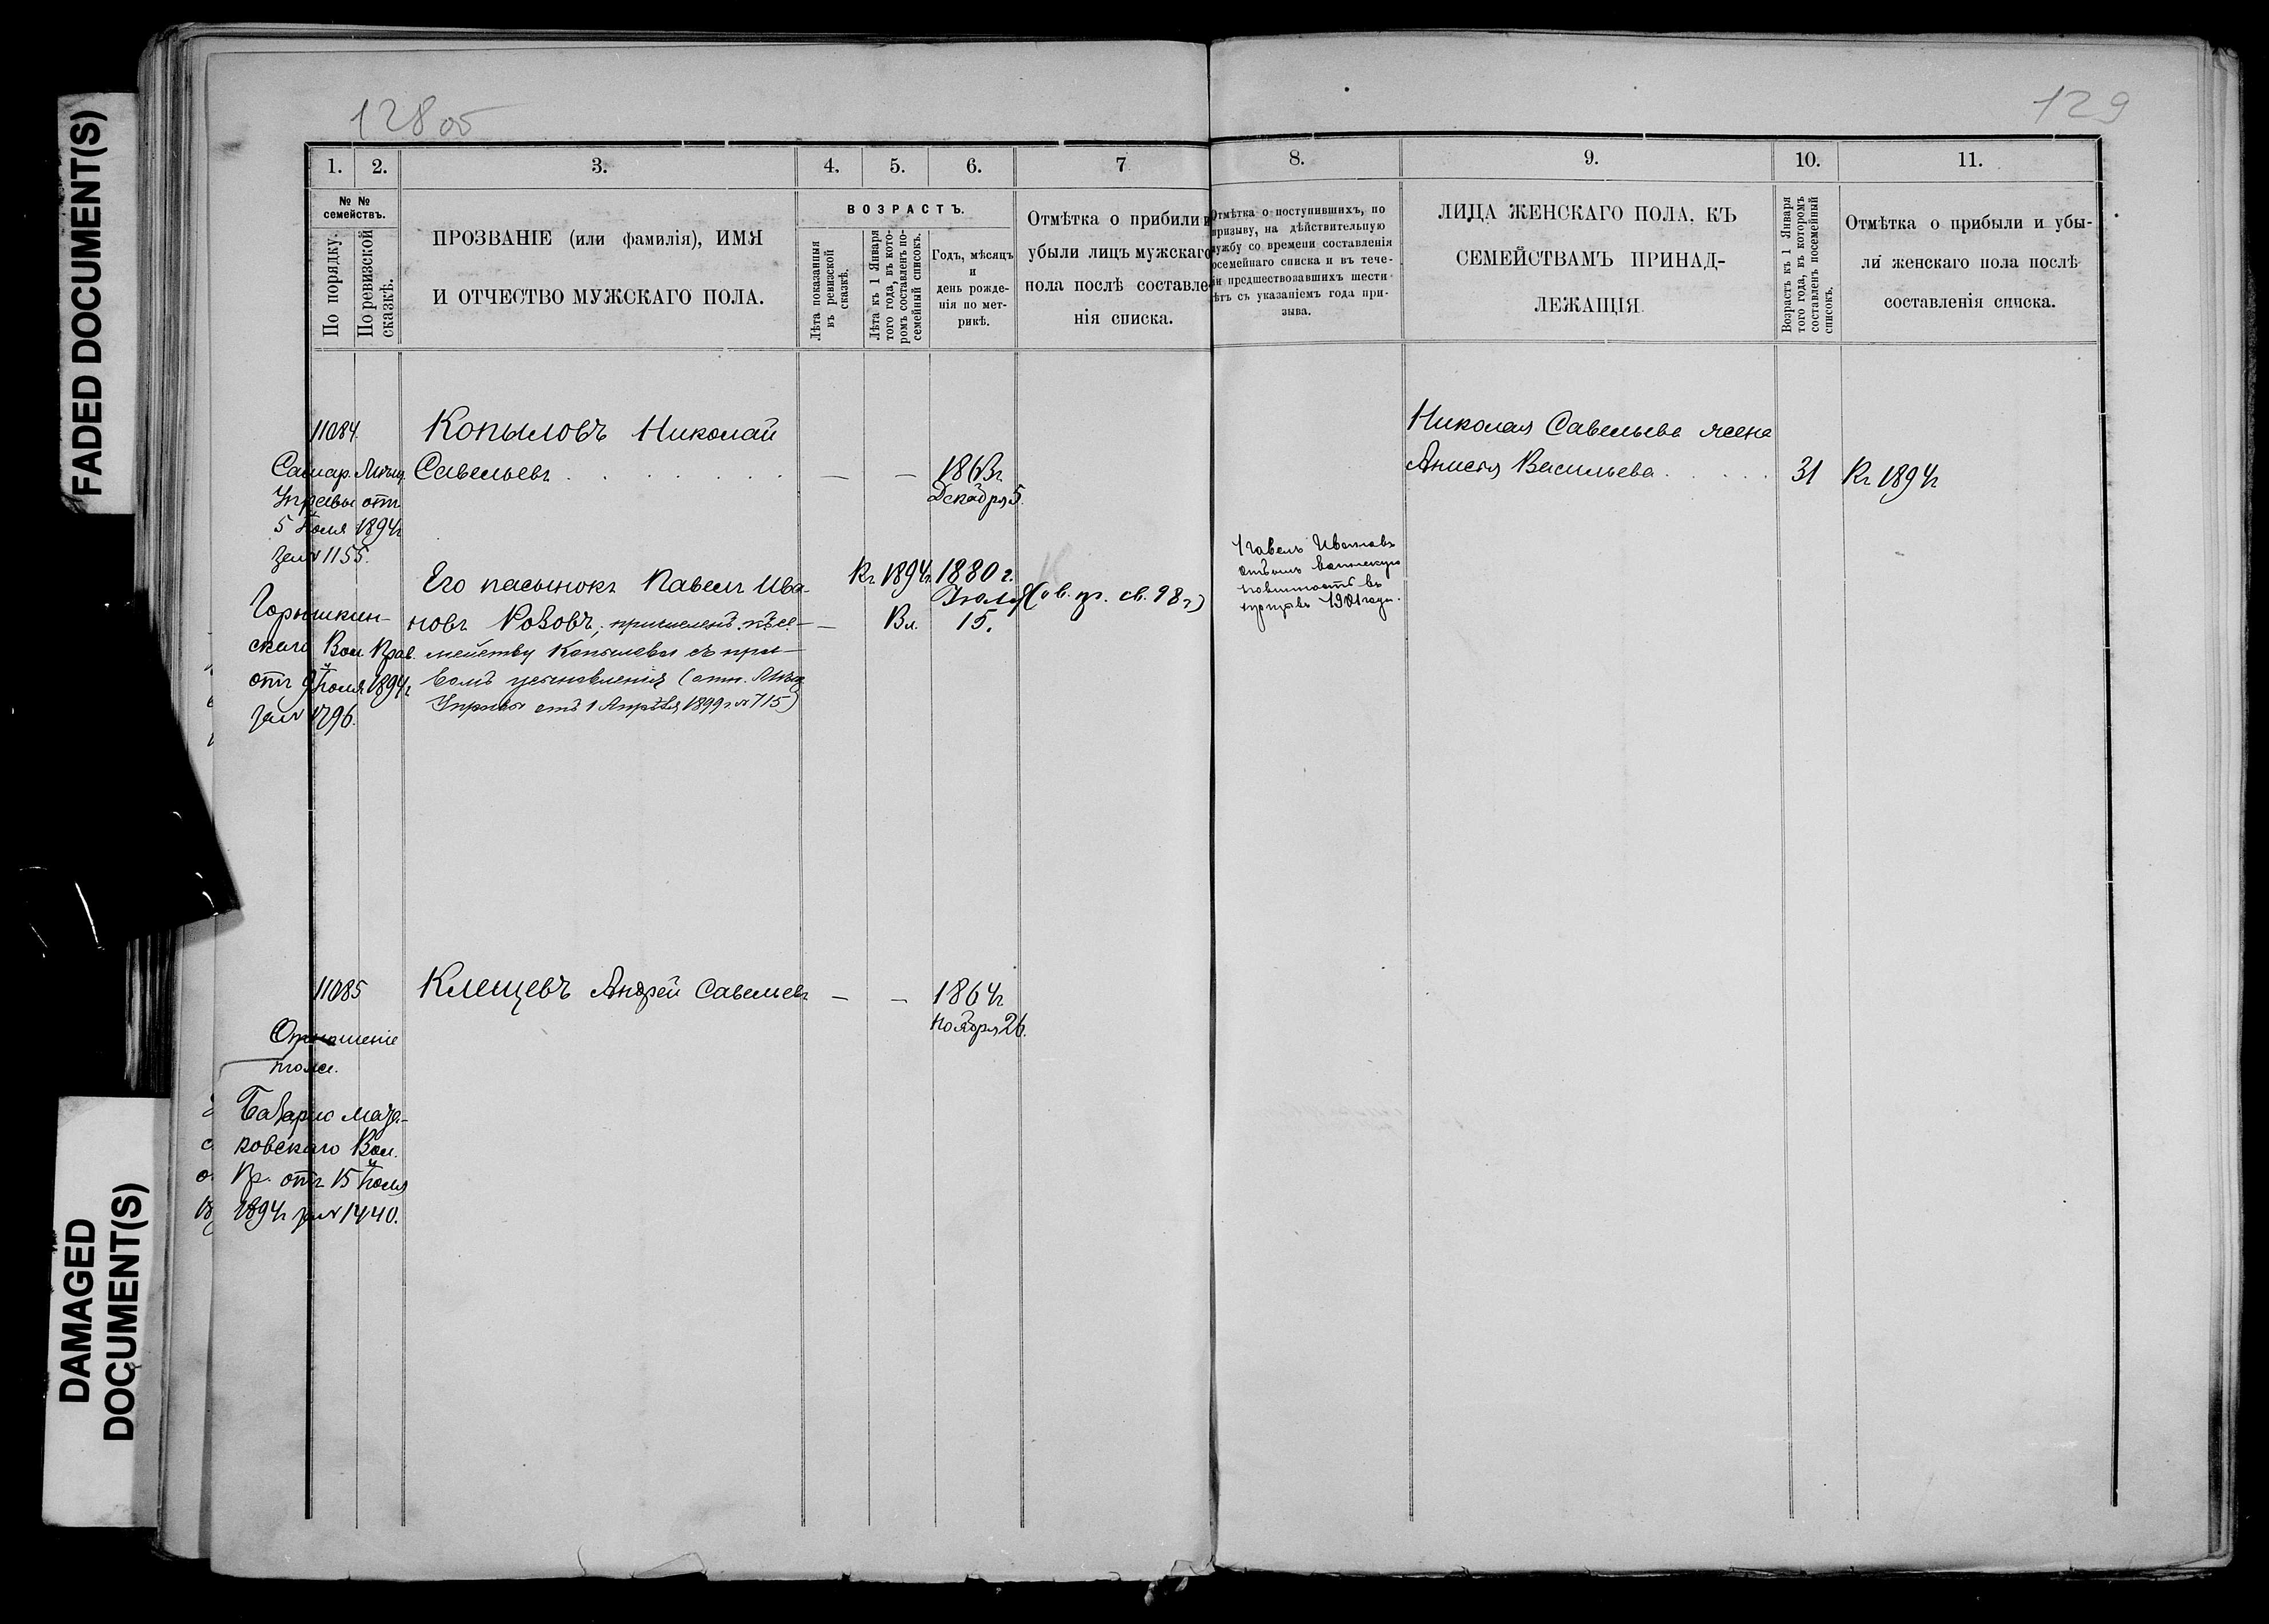 FADED DOCUMENT(S)
DAMAGED
DOCUMENT(S)
128 об
129
1.
2.
3.
4.
5.
6.
7
8.
9.
10.
11.
№ №
семействъ.
По порядку.
По ревизской
сказкѣ.
ПРОЗВАНІЕ (или фамилія), ИМЯ
И ОТЧЕСТВО МУЖСКАГО ПОЛА.
ВОЗРАСТЪ.
Лѣта показанныя
въ ревизской
сказкѣ.
Лѣта къ 1 Января
того года, въ кото-
ромъ составленъ по-
семейный списокъ.
Годъ, мѣсяцъ
и
день рожде-
нія по мет-
рикѣ.
Отмѣтка о прибыли и
убыли лицъ мужскаго
пола послѣ составле-
нія списка.
Отмѣтка о поступившихъ, по
призыву, на дѣйствительную
службу со времени составленія
посемейнаго списка и въ тече-
ніи предшествовавшихъ шести
лѣтъ съ указаніемъ года при-
зыва.
ЛИЦА ЖЕНСКАГО ПОЛА, КЪ
СЕМЕЙСТВАМЪ ПРИНАД-
ЛЕЖАЩІЯ.
Возрастъ къ 1 Января
того года, въ которомъ
составленъ посемейный
списокъ.
Отмѣтка о прибыли и убы-
ли женскаго пола послѣ
составленія списка.
11084.
Самар. Мѣщ.
Управы отъ
5 Іюля 1894г
за № 1155.
Копыловъ Николай
Савельевъ . . . . . . — —
1863г
Декабря 5.
Николая Савельева жена
Анисья Васильева . . . . 31 Къ 1894г
отъ 9 Іюля 1894г
за № 1296.
Его пасынокъ Павелъ Ива-
новъ Розовъ, причисленъ къ се-
мейству Копылова съ пра-
вомъ усыновленія (отн. Мѣщ.
Управы отъ 1 Апрѣля 1899г № 715)
Къ 1894г.
1880 г.
Іюля
15.
Павелъ Ивановъ
отбылъ воинскую
повинность въ
призывъ 1901 года.
11085
Отношеніе
ковскаго Вол.
Пр. отъ 15 Іюля
1894г за № 1440.
Клещевъ Андрей Савельевъ — —
1864г
Ноября 26.